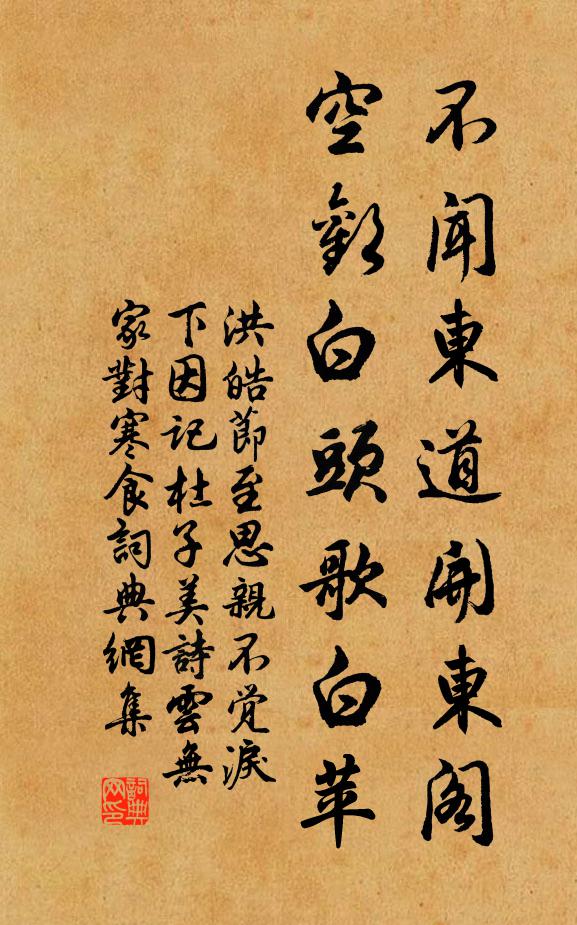 不聞東道開東閣
空勸白頭歌白苹
洪皓節至思親不觉淚
下因记杜子美詩雲無
家對寒食詞典網集
詞典網印